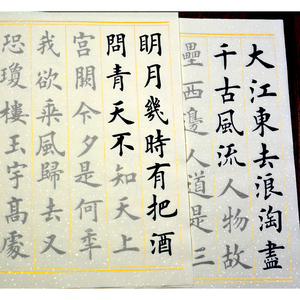 大江東去浪淘盡
千古風流人物故
壘西邊人道是三
明月幾時有把酒
問青天不知天上
宮闕今夕是何年
我欲乘風歸去又
恐瓊樓玉宇高處